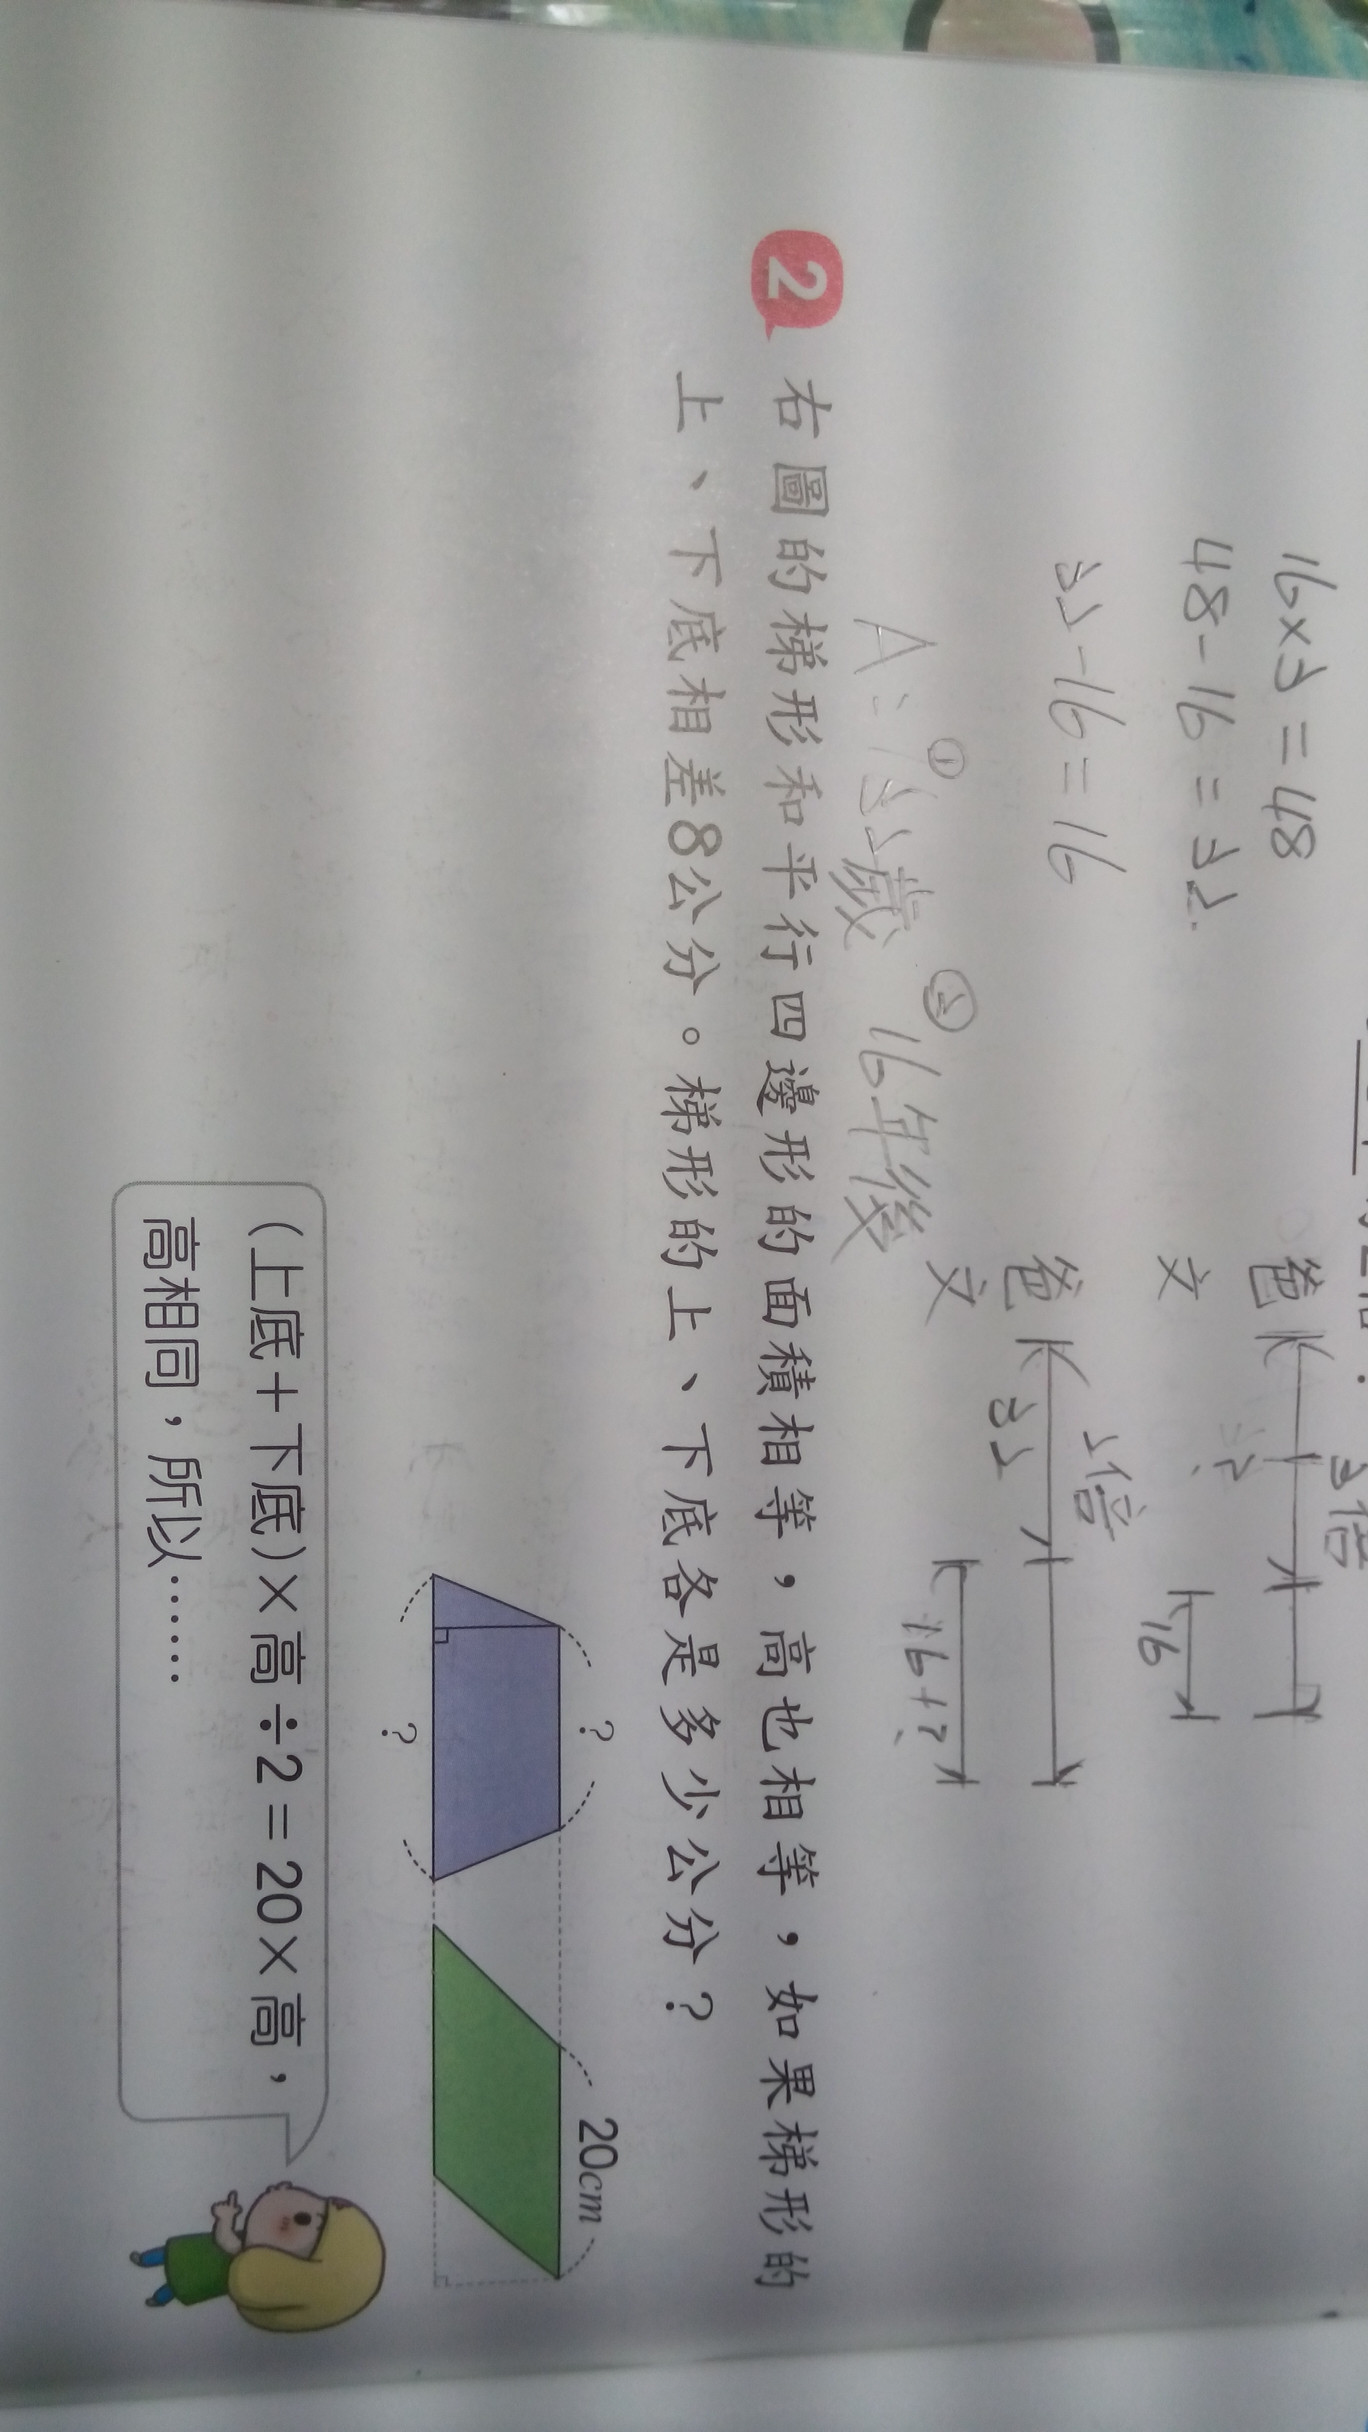 16×3=48
48-16=32
32-16=16
A:①32歲 ②16年後
爸
3倍
文
?
16
2倍
爸
32
文
16+?
2
右圖的梯形和平行四邊形的面積相等,高也相等,如果梯形的
上、下底相差8公分。梯形的上、下底各是多少公分?
?
20cm
?
(上底+下底)×高÷2=20×高,
高相同,所以……